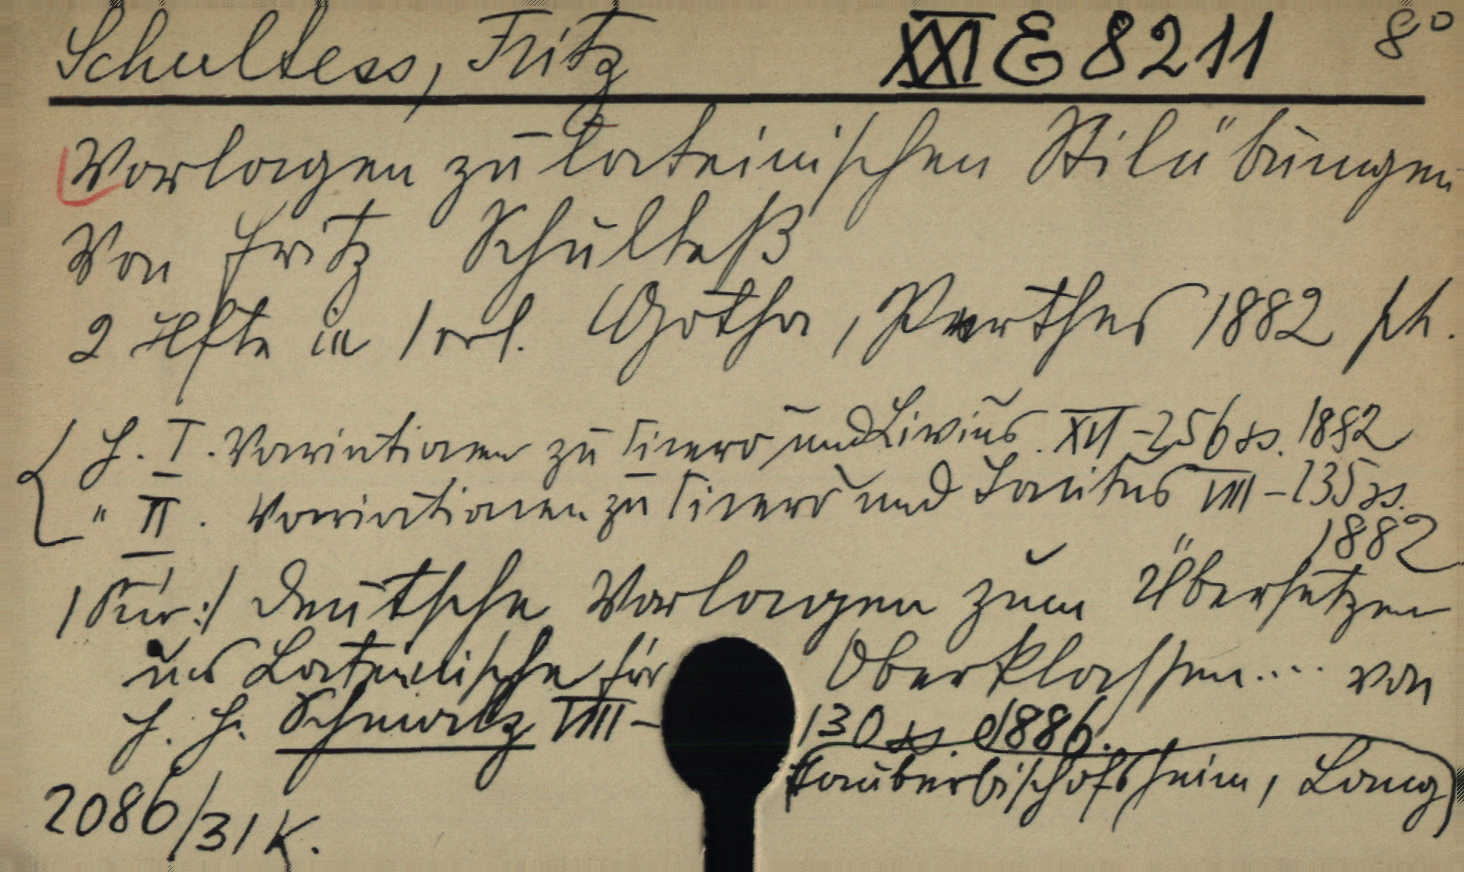 Schultess, Fritz XXI E 8211 8°
Vorlagen zu lateinischen Stilübungen
Von Fritz Schulteß
2 Hfte in 1 vol. Gotha, Perthes 1882
H. I. Variationen zu Cicero und Livius. XVI-256 ss. 1882
" II. Variationen zu Cicero und Tacitus VIII-135 ss.
1882
Deutsche Vorlagen zum Übersetzen
ins Lateinische für Oberklassen.... von
J. H. Schmalz VIII-130 ss. 1886.
(Tauberbischofsheim, Lang)
2086/31 K.